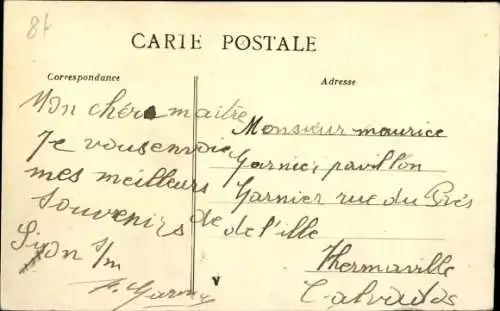 8f
CARIE POSTALE
Correspondance
Adresse
Mon chér maitre
Je vous envoie
mes meilleurs
Souvenirs de
Lyon s/m
Monsieur maurice
Garnier pavillon
Garnier rue du Prés
de l'ille
Thermaville
Calvados
V